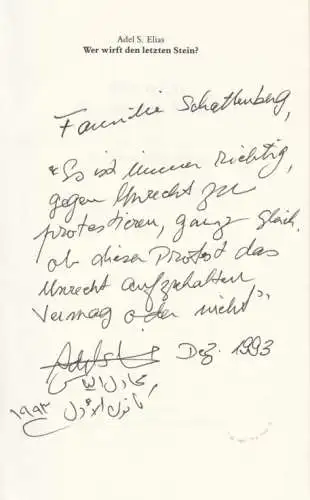 Adel S. Elias
Wer wirft den letzten Stein?
Familie Schattenberg,
"Es ist immer richtig,
gegen Unrecht zu
protestieren, ganz gleich,
ob dieser Protest das
Unrecht aufzuhalten
vermag oder nicht"
Adel S. Elias Dez. 1993
عادل الياس
كانون الأول
١٩٩٣